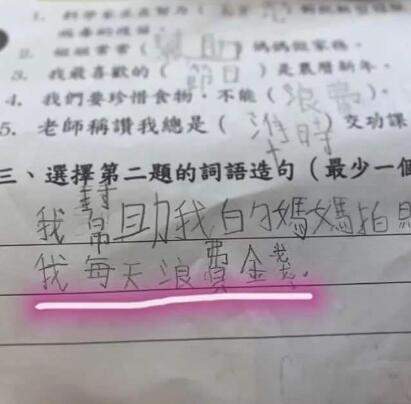 2. 姐姐常常（幫助）媽媽做家務。
3. 我最喜歡的（節日）是農曆新年。
4. 我們要珍惜食物，不能（浪費）。
5. 老師稱讚我總是（準時）交功課
三、選擇第二題的詞語造句（最少一個
我幫助我的媽媽拍
我每天浪費金錢。